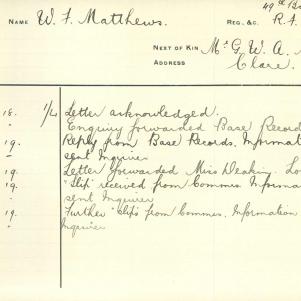 49th Ba
NAME W. F. Matthews. REG. &C. R. F.
NEXT OF KIN Mr G. W. A.
ADDRESS Clare.
18. 1/4 Letter acknowledged.
" Enquiry forwarded Base Record
19. Reply from Base Records. Informat
" sent Inquirer
19. Letter forwarded Miss Deakin. Lo
19. "Slip" received from Commrs. Informa
" sent Inquirer
19. Further "slips" from Commrs. Information
" Inquirer